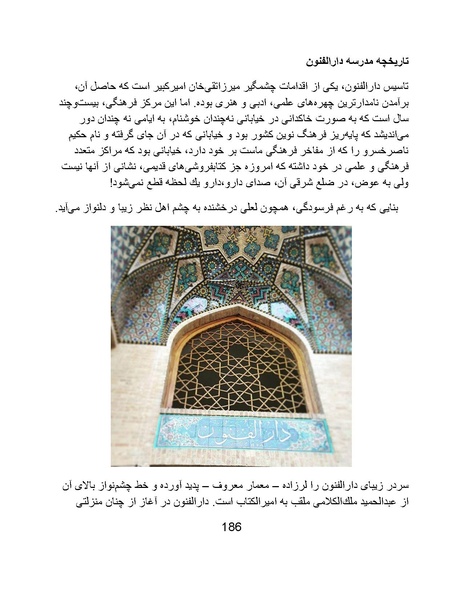 تاریخچه مدرسه دارالفنون
تاسیس دارالفنون، یکی از اقدامات چشمگیر میرزاتقی‌خان امیرکبیر است که حاصل آن،
برآمدن نامدارترین چهره‌های علمی، ادبی و هنری بوده. اما این مرکز فرهنگی، بیست‌وچند
سال است که به صورت خاکدانی در خیابانی نه‌چندان خوشنام، به ایامی نه چندان دور
می‌اندیشد که پایه‌ریز فرهنگ نوین کشور بود و خیابانی که در آن جای گرفته و نام حکیم
ناصرخسرو را که از مفاخر فرهنگی ماست بر خود دارد، خیابانی بود که مراکز متعدد
فرهنگی و علمی در خود داشته که امروزه جز کتابفروشی‌های قدیمی، نشانی از آنها نیست
ولی به عوض، در ضلع شرقی آن، صدای دارو،دارو یك لحظه قطع نمی‌شود!
بنایی که به رغم فرسودگی، همچون لعلی درخشنده به چشم اهل نظر زیبا و دلنواز می‌آید.
دارالفنون
سردر زیبای دارالفنون را لرزاده – معمار معروف – پدید آورده و خط چشم‌نواز بالای آن
از عبدالحمید ملك‌الکلامی ملقب به امیرالکتاب است. دارالفنون در آغاز از چنان منزلتی
186